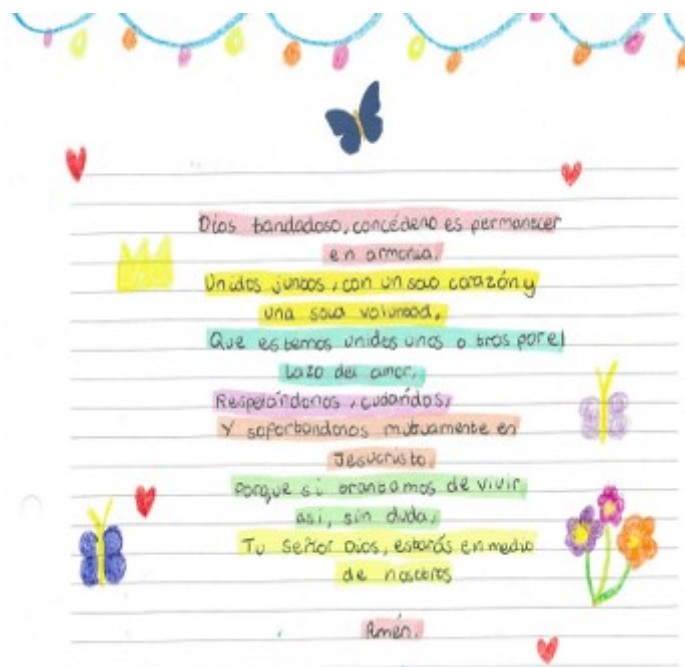 Dios bondadoso, concédeno es permanecer
en armonía,
Unidos juntos, con un solo corazón y
una sola voluntad,
Que estemos unidos unos o tros por el
lazo del amor,
Respetándonos, cuidándos,
Y soportandonos mutuamente en
Jesucristo,
Porque si tratamos de vivir
asi, sin duda,
Tu Señor Dios, estarás en medio
de nosotros
Amén.